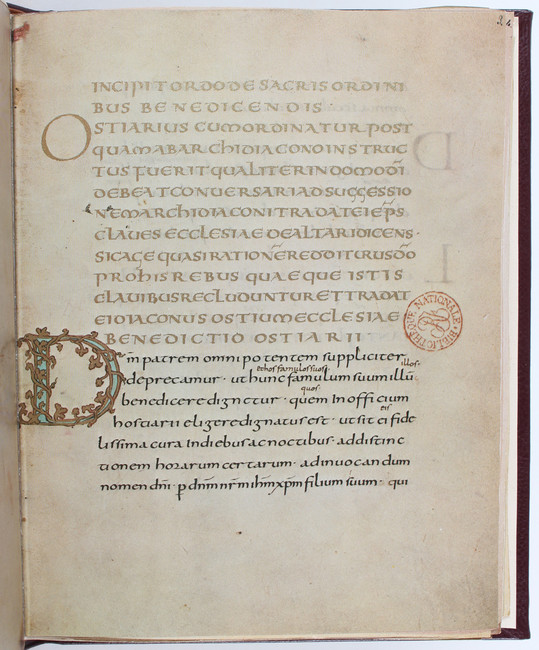 INCIPIT ORDO DE SACRIS ORDINI
BUS BENEDICENDIS ·
OSTIARIUS CUM ORDINATUR POST
QUAM AB ARCHIDIACONO INSTRUC
TUS FUERIT QUALITER IN DOMO DI
DEBEAT CONVERSARI AD SUGGESSIO
NEM ARCHIDIACONI TRADAT EI EPS
CLAVES ECCLESIAE DE ALTARI DICENS ·
SIC AGE QUASI RATIONE REDDITURUS DO
PRO HIS REBUS QUAEQUE ISTIS
CLAVIBUS RECLUDUNTUR ET TRADAT
EI DIACONUS OSTIUM ECCLESIAE
BENEDICTIO OSTIARII
Dm patrem omnipotentem suppliciter
illos ·
et hos famulos suos
deprecamur · ut hunc famulum suum illu
benedicere dignetur · quem in officium
quos
eis
hostiarii eligere dignatus est · ut sit ei fide
lissima cura in diebus ac noctibus · ad distinc
tionem horarum certarum · ad invocandum
nomen dni · p dnm nrm ihm xpm filium suum · qui
BIBLIOTHEQUE NATIONALE